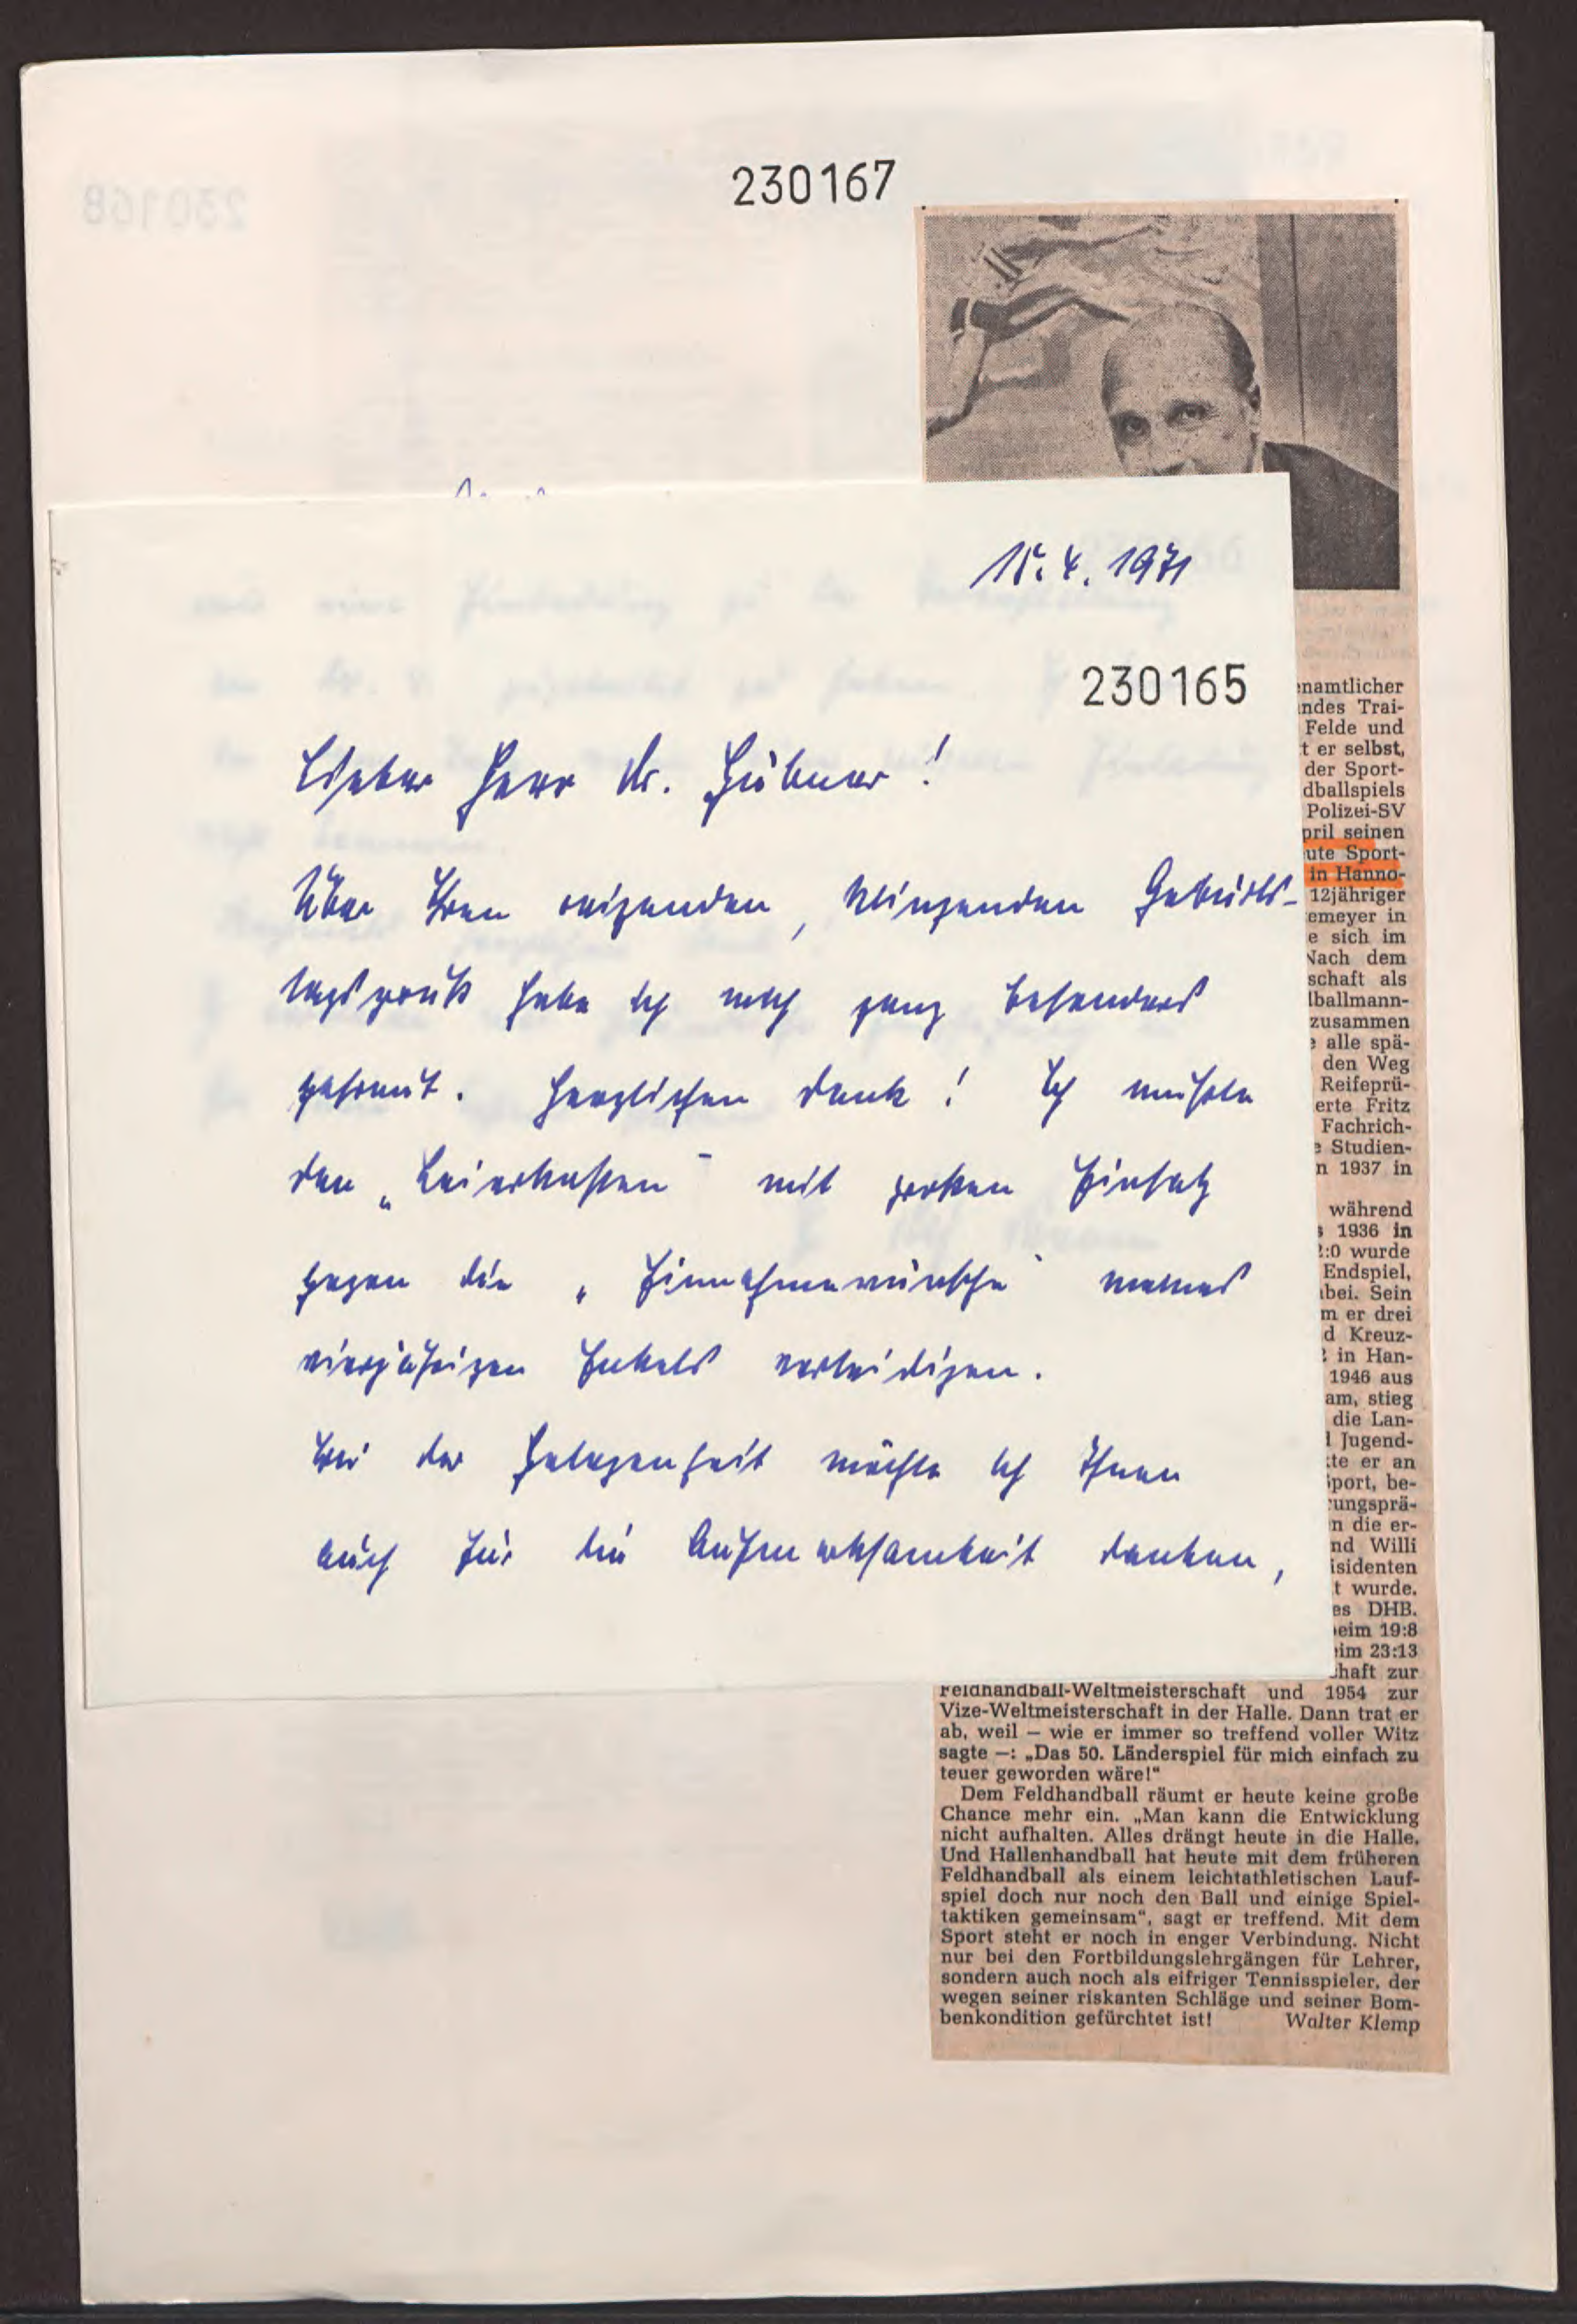 230167
15.4.1971
230165
Lieber Herr Dr. Hübner!
Über Ihren reizenden, klingenden Geburts-
tagsgruß habe ich mich ganz besonders
gefreut. Herzlichen Dank! Ich mußte
den „Leierkasten" mit großem Einsatz
gegen die „Einnahmewünsche" meines
vierjährigen Enkels verteidigen.
Bei der Gelegenheit möchte ich Ihnen
auch für die Aufmerksamkeit danken,
enamtlicher
ndes Trai-
Felde und
t er selbst,
der Sport-
dballspiels
Polizei-SV
pril seinen
ute Sport-
in Hanno-
12jähriger
emeyer in
e sich im
Nach dem
schaft als
lballmann-
zusammen
e alle spä-
den Weg
Reifeprü-
erte Fritz
Fachrich-
e Studien-
n 1937 in
während
s 1936 in
2:0 wurde
Endspiel,
bei. Sein
m er drei
d Kreuz-
in Han-
1946 aus
am, stieg
die Lan-
l Jugend-
te er an
port, be-
rungsprä-
n die er-
nd Willi
isidenten
t wurde.
es DHB.
eim 19:8
im 23:13
haft zur
Feldhandball-Weltmeisterschaft und 1954 zur
Vize-Weltmeisterschaft in der Halle. Dann trat er
ab, weil — wie er immer so treffend voller Witz
sagte —: „Das 50. Länderspiel für mich einfach zu
teuer geworden wäre!"
Dem Feldhandball räumt er heute keine große
Chance mehr ein. „Man kann die Entwicklung
nicht aufhalten. Alles drängt heute in die Halle.
Und Hallenhandball hat heute mit dem früheren
Feldhandball als einem leichtathletischen Lauf-
spiel doch nur noch den Ball und einige Spiel-
taktiken gemeinsam", sagt er treffend. Mit dem
Sport steht er noch in enger Verbindung. Nicht
nur bei den Fortbildungslehrgängen für Lehrer,
sondern auch noch als eifriger Tennisspieler, der
wegen seiner riskanten Schläge und seiner Bom-
benkondition gefürchtet ist! Walter Klemp